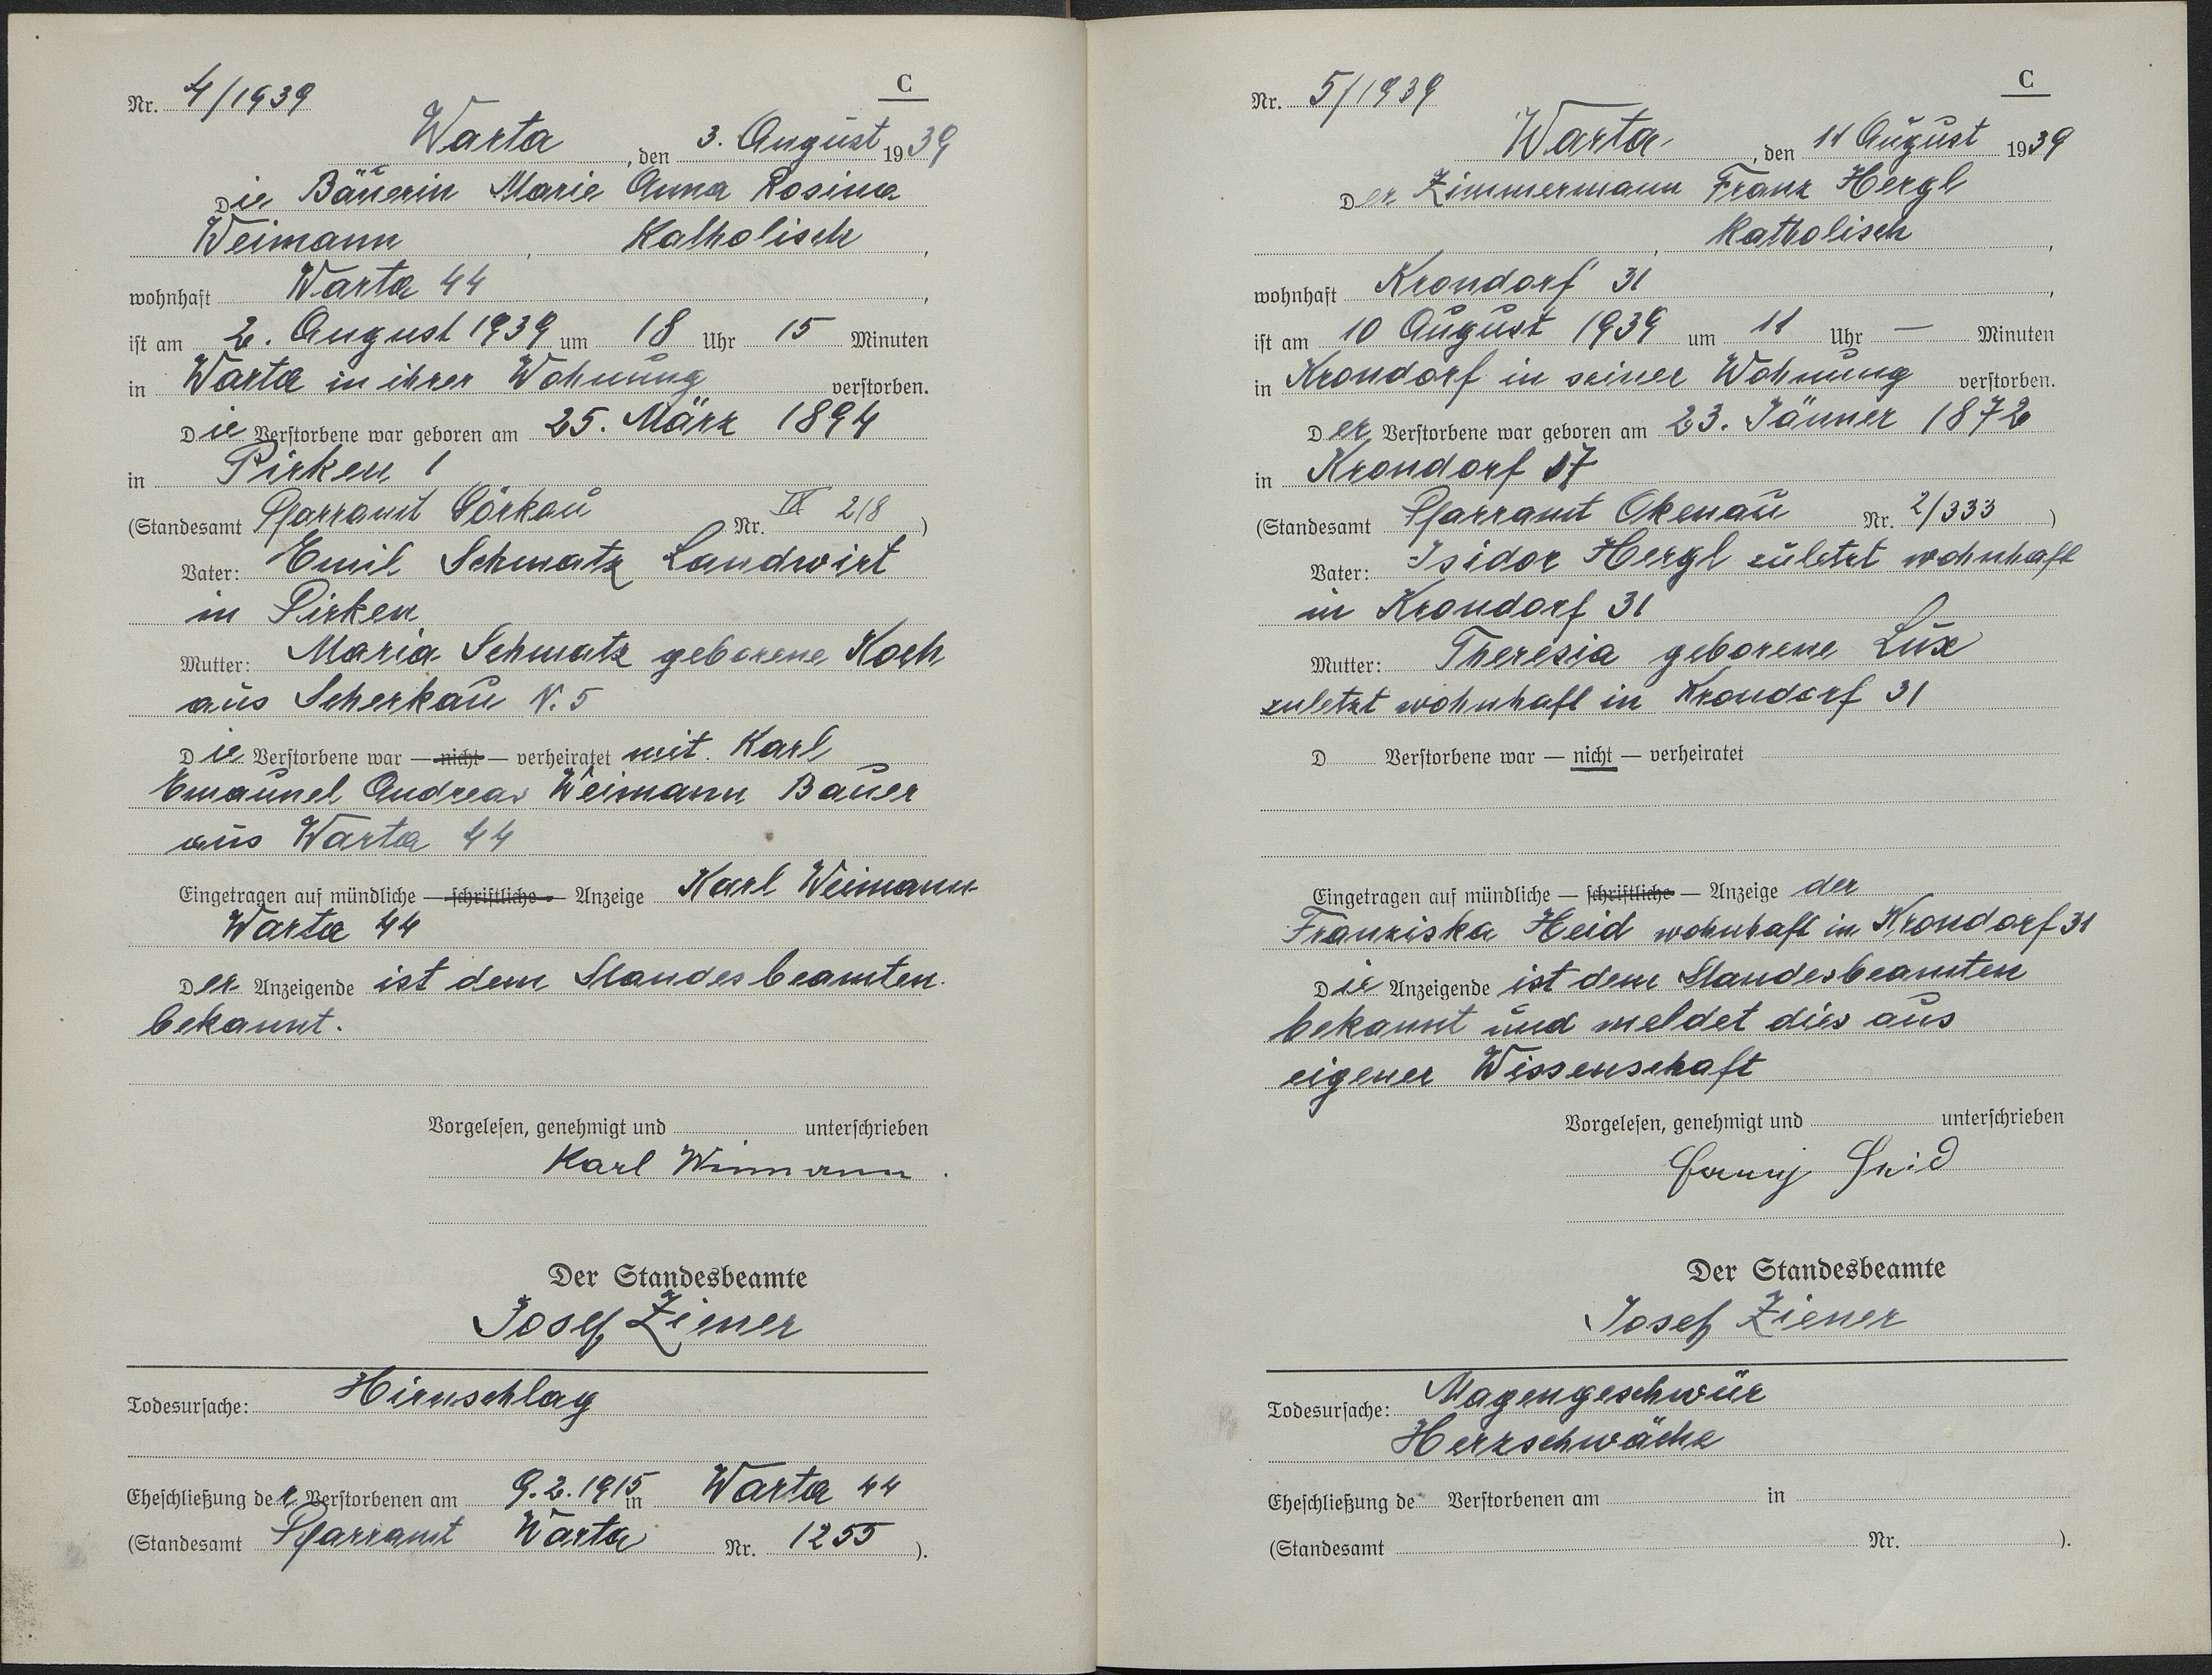 Nr. 4/1939
C
Warta, den 3. August 1939
Die Bäuerin Marie Anna Rosina
Weimann, Katholisch,
wohnhaft Warta 44,
ist am 2. August 1939 um 18 Uhr 15 Minuten
in Warta in ihrer Wohnung verstorben.
Die Verstorbene war geboren am 25. März 1894
in Pirken 1
(Standesamt Pfarramt Görkau Nr. IX 218)
Vater: Emil Schmatz Landwirt
in Pirken
Mutter: Maria Schmatz geborene Koch
aus Scherkau N. 5
Die Verstorbene war — nicht — verheiratet mit. Karl
Emaunel Andreas Weimann Bauer
aus Warta 44
Eingetragen auf mündliche — schriftliche — Anzeige Karl Weimann
Warta 44
Der Anzeigende ist dem Standesbeamten
bekannt.
Vorgelesen, genehmigt und unterschrieben
Karl Weimann
Der Standesbeamte
Josef Ziener
Todesursache: Hirnschlag
Eheschließung der Verstorbenen am 9.2.1915 in Warta 44
(Standesamt Pfarramt Warta Nr. 1255).
Nr. 5/1939
C
Warta, den 11 August 1939
Der Zimmermann Franz Hergl
, Katholisch,
wohnhaft Krondorf 31,
ist am 10 August 1939 um 11 Uhr — Minuten
in Krondorf in seiner Wohnung verstorben.
Der Verstorbene war geboren am 23. Jänner 1872
in Krondorf 17
(Standesamt Pfarramt Okenau Nr. 2/333)
Vater: Isidor Hergl zuletzt wohnhaft
in Krondorf 31
Mutter: Theresia geborene Lux
zuletzt wohnhaft in Krondorf 31
D Verstorbene war — nicht — verheiratet
Eingetragen auf mündliche — schriftliche — Anzeige der
Franziska Heid wohnhaft in Krondorf 31
Die Anzeigende ist dem Standesbeamten
bekannt und meldet dies aus
eigener Wissenschaft
Vorgelesen, genehmigt und unterschrieben
Heid
Der Standesbeamte
Josef Ziener
Todesursache: Magengeschwür
Herzschwäche
Eheschließung de Verstorbenen am in
(Standesamt Nr. ).